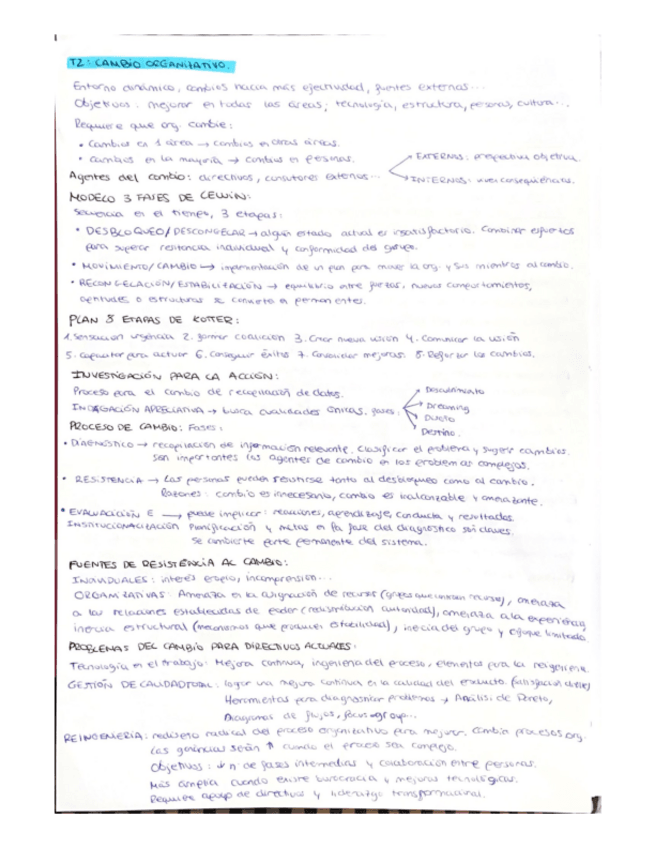 T2: CAMBIO ORGANITATIVO.
Entorno dinámico, cambios hacia más efectividad, fuentes externas...
Objetivos: mejorar en todas las áreas; tecnología, estructura, personas, cultura...
Requiere que org. cambie:
• Cambios en 1 área → cambios en otras áreas.
• Cambios en la mayoría → cambios en personas.
EXTERNOS: perspectiva objetiva.
Agentes del cambio: directivos, consultores externos...
INTERNOS: viven consecuencias.
MODELO 3 FASES DE LEWIN:
Secuencia en el tiempo, 3 etapas:
• DESBLOQUEO/DESCONGELAR → algún estado actual es insatisfactorio. Combinar esfuerzos
para superar resistencia individual y conformidad del grupo.
• MOVIMIENTO/CAMBIO → implementación de un plan para mover la org. y sus miembros al cambio.
• RECONGELACIÓN/ESTABILIZACIÓN → equilibrio entre fuerzas, nuevos comportamientos,
aptitudes o estructuras se convierten en permanentes.
PLAN 8 ETAPAS DE KOTTER:
1. Sensación urgencia 2. formar coalición 3. Crear nueva visión 4. Comunicar la visión
5. Capacitar para actuar 6. Conseguir éxitos 7. Consolidar mejoras. 8. Reforzar los cambios.
INVESTIGACIÓN PARA LA ACCIÓN:
Proceso para el cambio de recopilación de datos.
Descubrimiento
INDAGACIÓN APRECIATIVA → busca cualidades únicas. fases:
Dreaming
Diseño
PROCESO DE CAMBIO: Fases:
Destino.
• DIAGNÓSTICO → recopilación de información relevante. Clasificar el problema y sugerir cambios.
Son importantes los agentes de cambio en los problemas complejos.
• RESISTENCIA → Las personas pueden resistirse tanto al desbloqueo como al cambio.
Razones: cambio es innecesario, cambio es inalcanzable y amenazante.
• EVALUACIÓN E → puede implicar: reacciones, aprendizaje, conducta y resultados
INSTITUCIONALIZACIÓN Planificación y metas en la fase del diagnóstico son claves.
Se convierte parte permanente del sistema.
FUENTES DE RESISTENCIA AL CAMBIO:
INDIVIDUALES: interés propio, incomprensión...
ORGANIZATIVAS: Amenaza en la asignación de recursos (grupos que controlan recursos), amenaza
a las relaciones establecidas de poder (redistribución autoridad), amenaza a la experiencia,
inercia estructural (mecanismos que producen estabilidad), inercia del grupo y enfoque limitado.
PROBLEMAS DEL CAMBIO PARA DIRECTIVOS ACTUALES:
Tecnología en el trabajo: Mejora continua, ingeniería del proceso, elementos para la reingeniería.
GESTIÓN DE CALIDAD TOTAL: lograr una mejora continua en la calidad del producto. (satisfacción cliente)
Herramientas para diagnosticar problemas → Análisis de Pareto,
Diagramas de flujos, focus-group...
REINGENIERÍA: rediseño radical del proceso organizativo para mejorar. Cambia procesos org.
Las ganancias serán ↑ cuando el proceso sea complejo.
Objetivos: ↓ nº de fases intermedias y colaboración entre personas.
Más amplia cuando existe burocracia y mejoras tecnológicas.
Requiere apoyo de directivos y liderazgo transformacional.